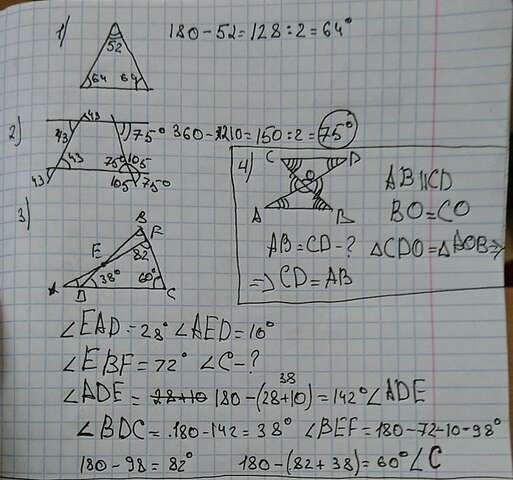 1) 52 180-52=128:2=64°
64 64
2) 43 75° 360-210=150:2=75°
43 43 75° 105
43 105 75°
4) C D
O AB||CD
A B BO=CO
AB=CD-? △CDO=△AOB⇒
⇒CD=AB
3) B F
E 82
A D 38° 60° C
∠EAD=28° ∠AED=10°
∠EBF=72° ∠C-?
∠ADE= 28+10 180-(28+10)=142° ∠ADE
38
∠BDC=180-142=38° ∠BEF=180-72-10-98°
180-98=82° 180-(82+38)=60° ∠C